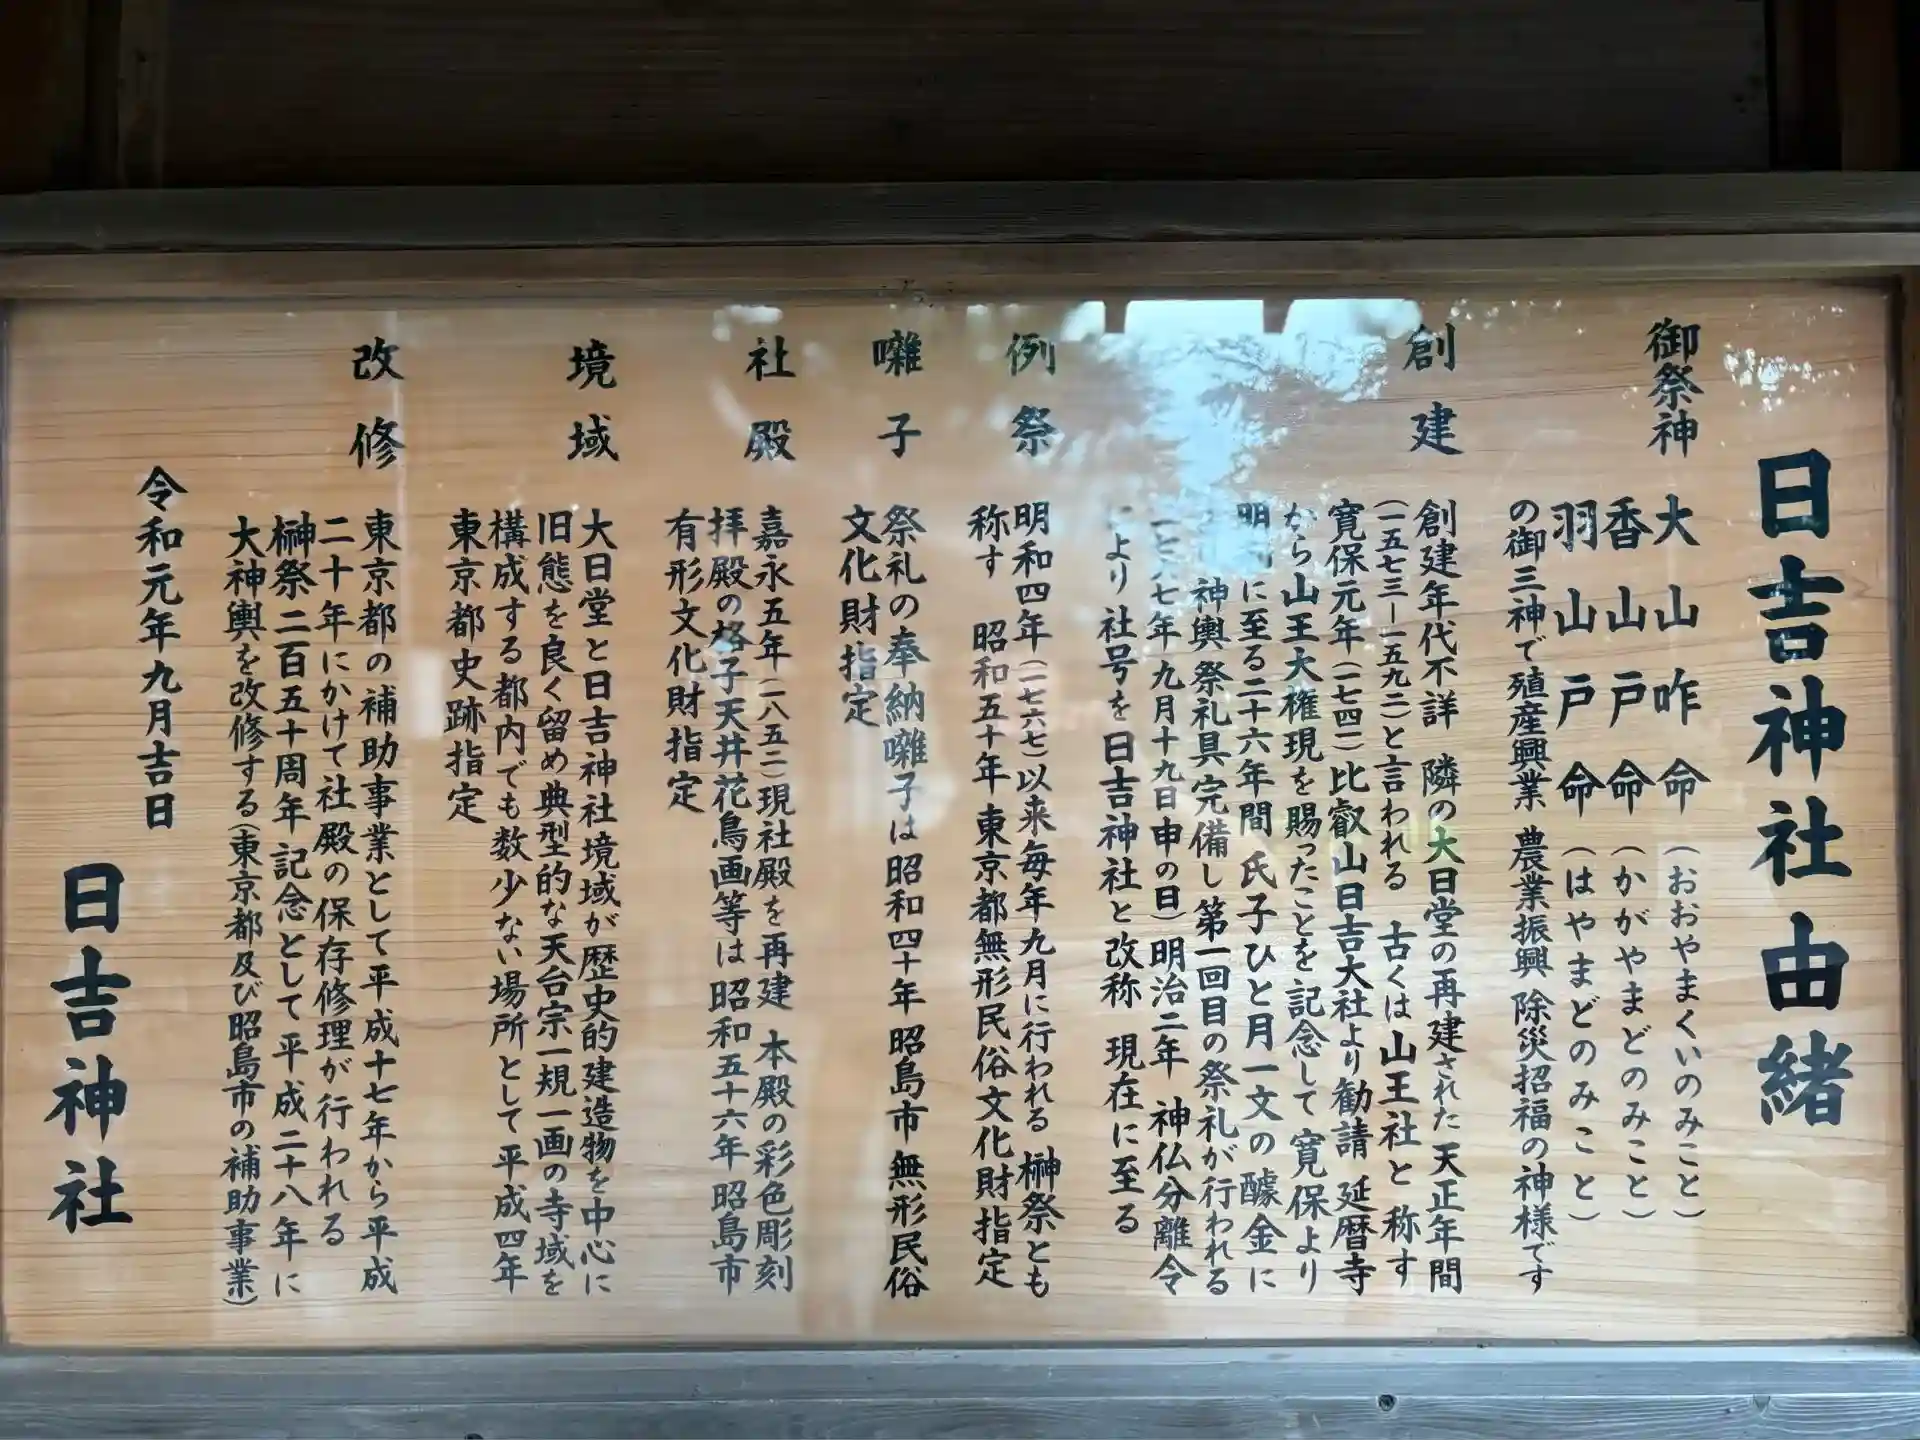 日吉神社由緒
御祭神 大山咋命(おおやまくいのみこと)
香山戸命(かがやまどのみこと)
羽山戸命(はやまどのみこと)
の御三神で殖産興業 農業振興 除災招福の神様です
創建 創建年代不詳 隣の大日堂の再建された天正年間
(一五七三-一五九二)と言われる 古くは山王社と称す
寛保元年(一七四一)比叡山日吉大社より勧請 延暦寺
から山王大権現を賜ったことを記念して寛保より
明和に至る二十六年間 氏子ひと月一文の醵金に
神輿祭礼具完備し第一回目の祭礼が行われる
七年九月十九日申の日)明治二年 神仏分離令
により社号を日吉神社と改称 現在に至る
例祭 明和四年(一七六七)以来毎年九月に行われる 榊祭とも
称す 昭和五十年 東京都無形民俗文化財指定
囃子 祭礼の奉納囃子は昭和四十年 昭島市 無形民俗
文化財指定
社殿 嘉永五年(一八五二)現社殿を再建 本殿の彩色彫刻
拝殿の格子天井花鳥画等は昭和五十六年昭島市
有形文化財指定
境域 大日堂と日吉神社境域が歴史的建造物を中心に
旧態を良く留め典型的な天台宗一規一画の寺域を
構成する都内でも数少ない場所として平成四年
東京都史跡指定
改修 東京都の補助事業として平成十七年から平成
二十年にかけて社殿の保存修理が行われる
榊祭二百五十周年記念として平成二十八年に
大神輿を改修する(東京都及び昭島市の補助事業)
令和元年九月吉日
日吉神社